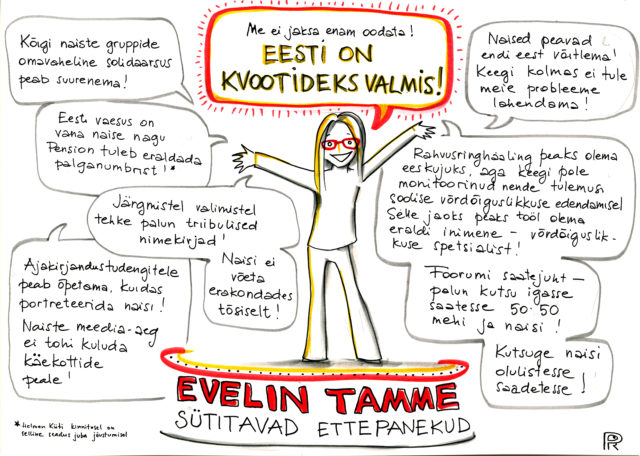 Kõigi naiste gruppide
omavaheline solidaarsus
peab suurenema!
Me ei jaksa enam oodata!
EESTI ON
KVOOTIDEKS VALMIS!
Naised peavad
endi eest võitlema!
Keegi kolmas ei tule
meie probleeme
lahendama!
Eesti vaesus on
vana naise nägu
Pension tuleb eraldada
palganumbrist!*
Rahvusringhääling peaks olema
eeskujuks, aga keegi pole
monitoorinud nende tulemusi
soolise võrdõiguslikkuse edendamisel
Selle jaoks peaks tööl olema
eraldi inimene – võrdõiguslik-
kuse spetsialist!
Järgmistel valimistel
tehke palun triibulised
nimekirjad!
Naisi ei
võeta
erakondades
tõsiselt!
Ajakirjandustudengitele
peab õpetama, kuidas
portreteerida naisi!
Naiste meedia-aeg
ei tohi kuluda
käekottide
peale!
Foorumi saatejuht –
palun kutsu igasse
saatesse 50-50
mehi ja naisi!
Kutsuge naisi
olulistesse
saadetesse!
EVELIN TAMME
SÜTITAVAD ETTEPANEKUD
*Helmen Küti kinnitusel on
selline seadus juba jõustumisel
PR